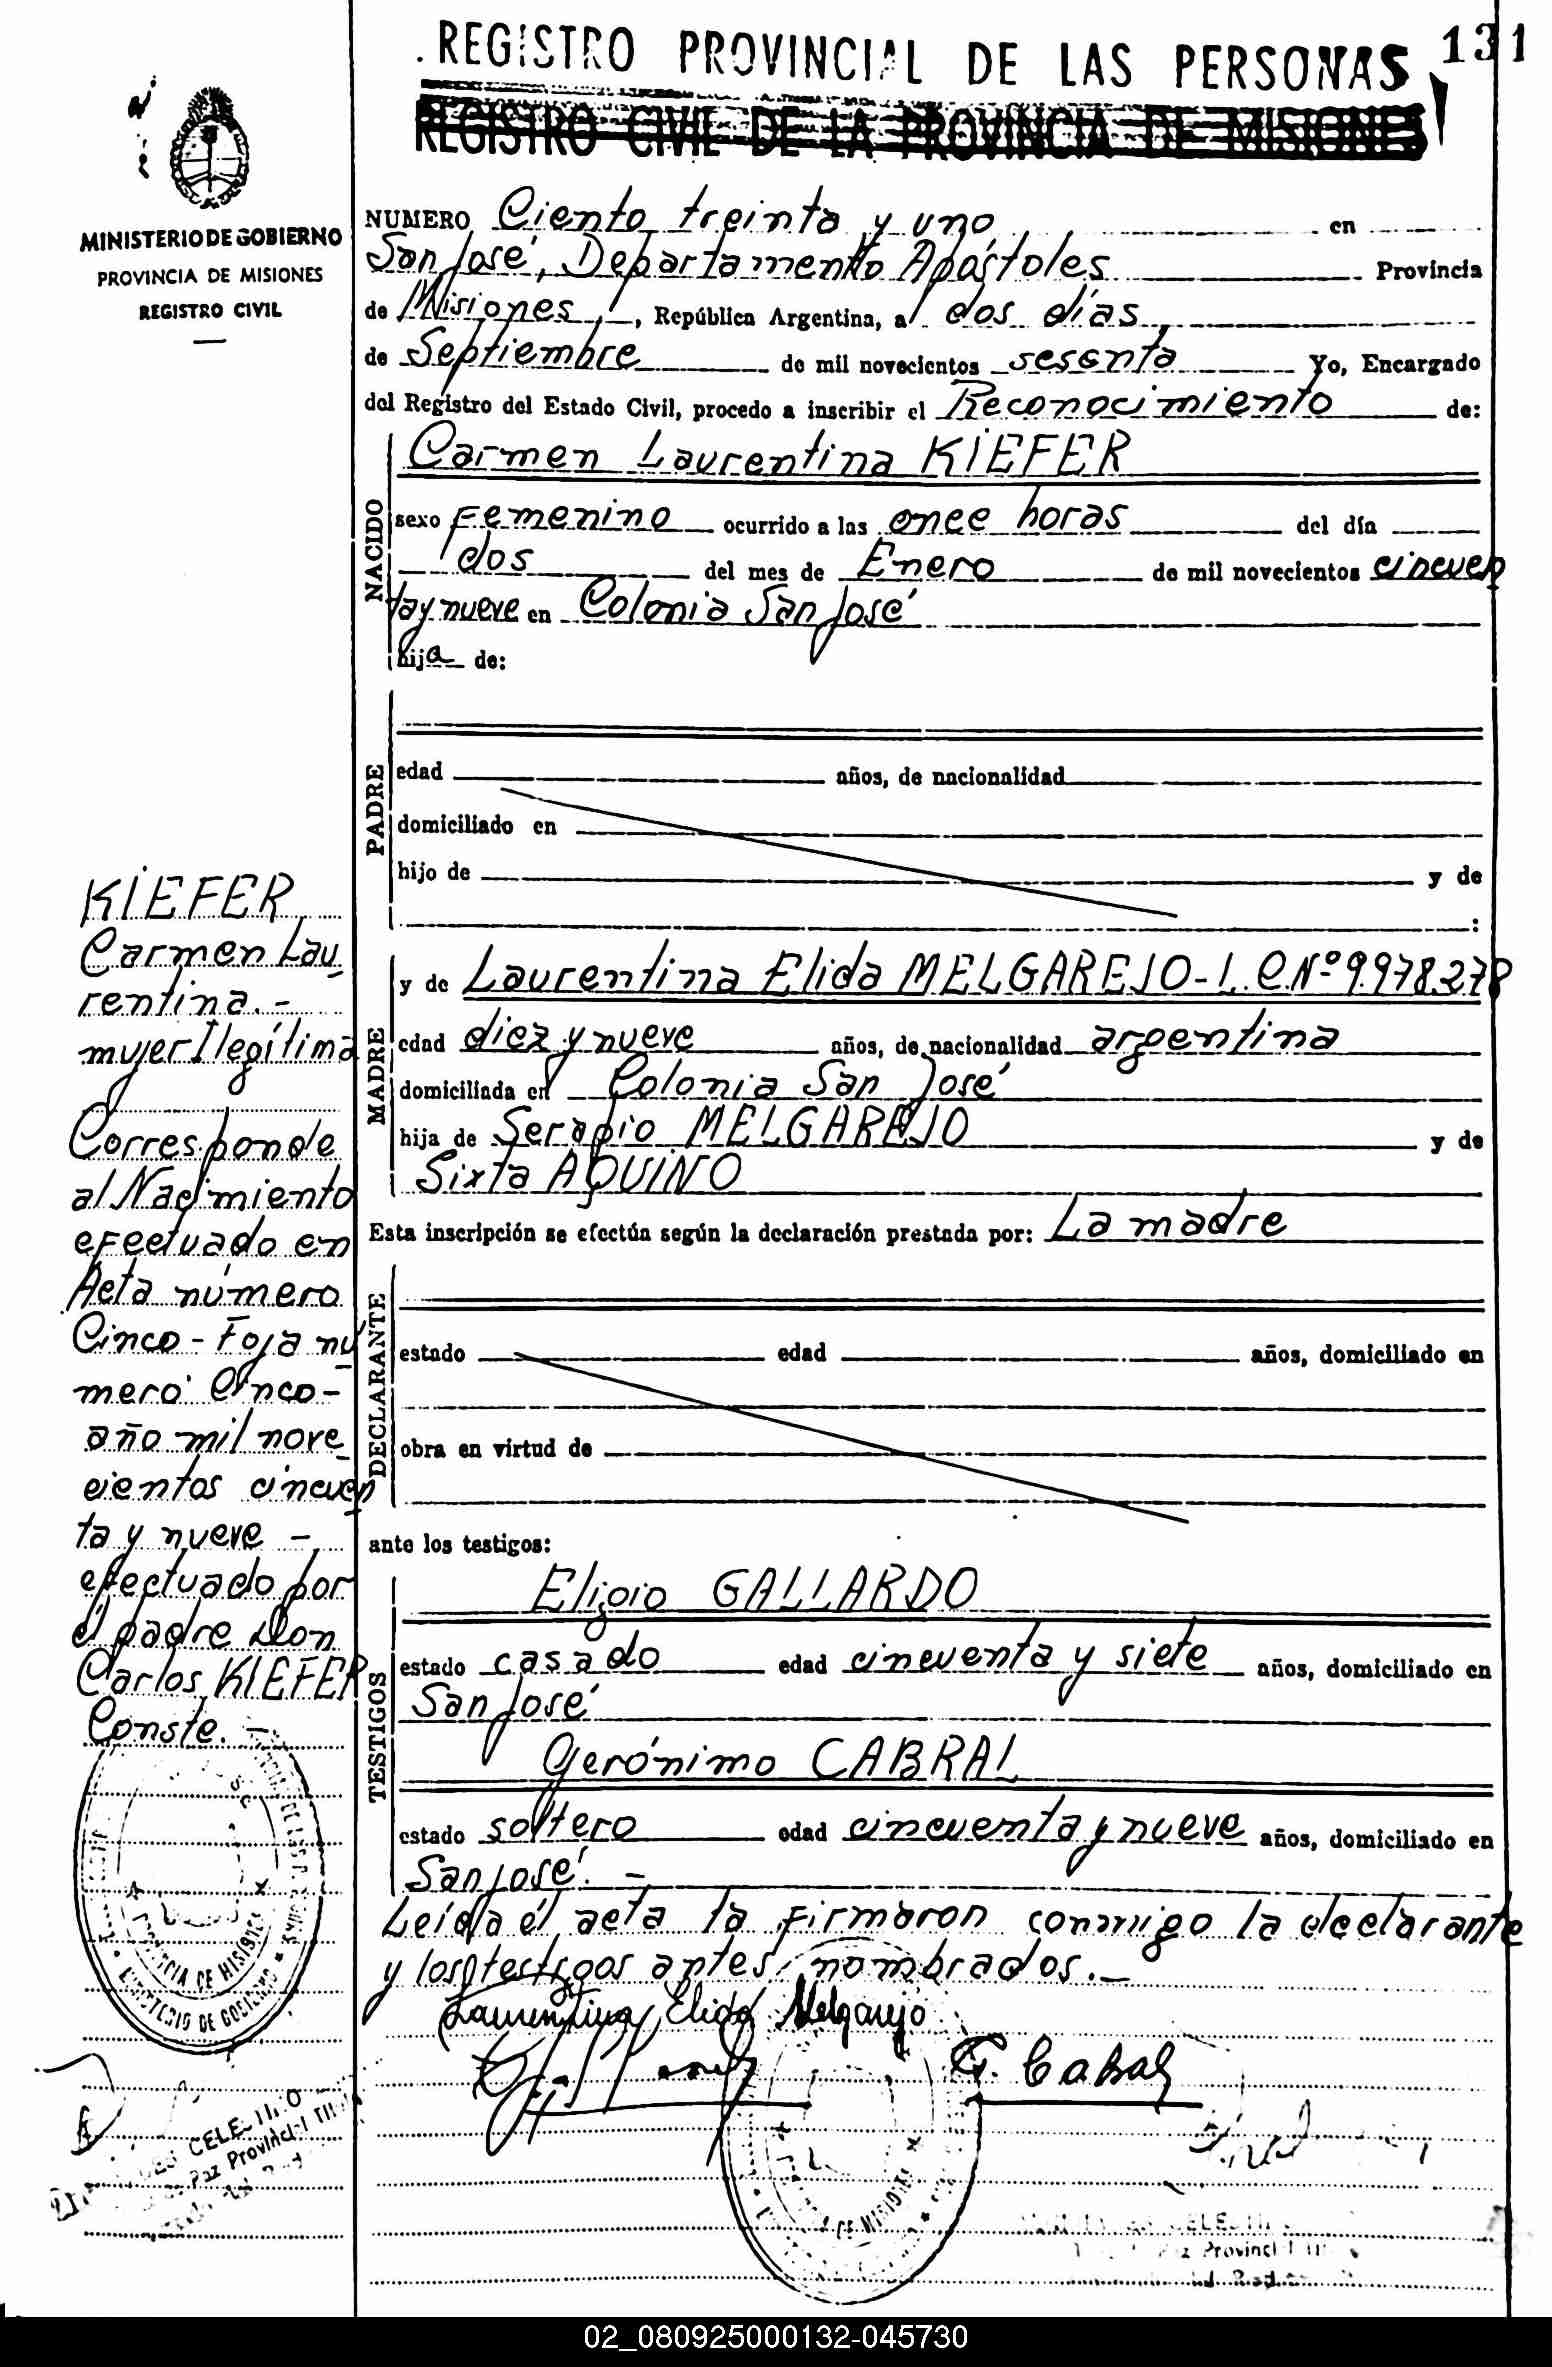 REGISTRO PROVINCIAL DE LAS PERSONAS
131
REGISTRO CIVIL DE LA PROVINCIA DE MISIONES
MINISTERIO DE GOBIERNO
PROVINCIA DE MISIONES
REGISTRO CIVIL
NUMERO Ciento treinta y uno en
San José, Departamento Apóstoles Provincia
de Misiones, República Argentina, a dos días
de Septiembre de mil novecientos sesenta Yo, Encargado
del Registro del Estado Civil, procedo a inscribir el Reconocimiento de:
NACIDO
Carmen Laurentina KIEFER
sexo Femenino ocurrido a las once horas del día
dos del mes de Enero de mil novecientos cincuen
ta y nueve en Colonia San José
hija de:
PADRE
edad años, de nacionalidad
domiciliado en
hijo de y de
:
MADRE
y de Laurentina Elida MELGAREJO - L.C. Nº 9.978.278
edad diez y nueve años, de nacionalidad argentina
domiciliada en Colonia San José
hija de Serapio MELGAREJO y de
Sixta AQUINO
Esta inscripción se efectúa según la declaración prestada por: La madre
DECLARANTE
estado edad años, domiciliado en
obra en virtud de
ante los testigos:
TESTIGOS
Eligio GALLARDO
estado casado edad cincuenta y siete años, domiciliado en
San José
Gerónimo CABRAL
estado soltero edad cincuenta y nueve años, domiciliado en
San José. -
Leída él acta la firmaron conmigo la declarante
y los testigos antes nombrados. -
Laurentina Elida Melgarejo
G. Cabral
KIEFER
Carmen Lau
rentina. -
mujer Ilegítima
Corresponde
al Nacimiento
efectuado en
Acta número
Cinco - Foja nú
mero Cinco -
año mil nove
cientos cincuen
ta y nueve -
efectuado por
él padre Don
Carlos KIEFER
Conste. -
PROVINCIA DE MISIONES
MINISTERIO DE GOBIERNO
DE MISIONES
02_080925000132-045730